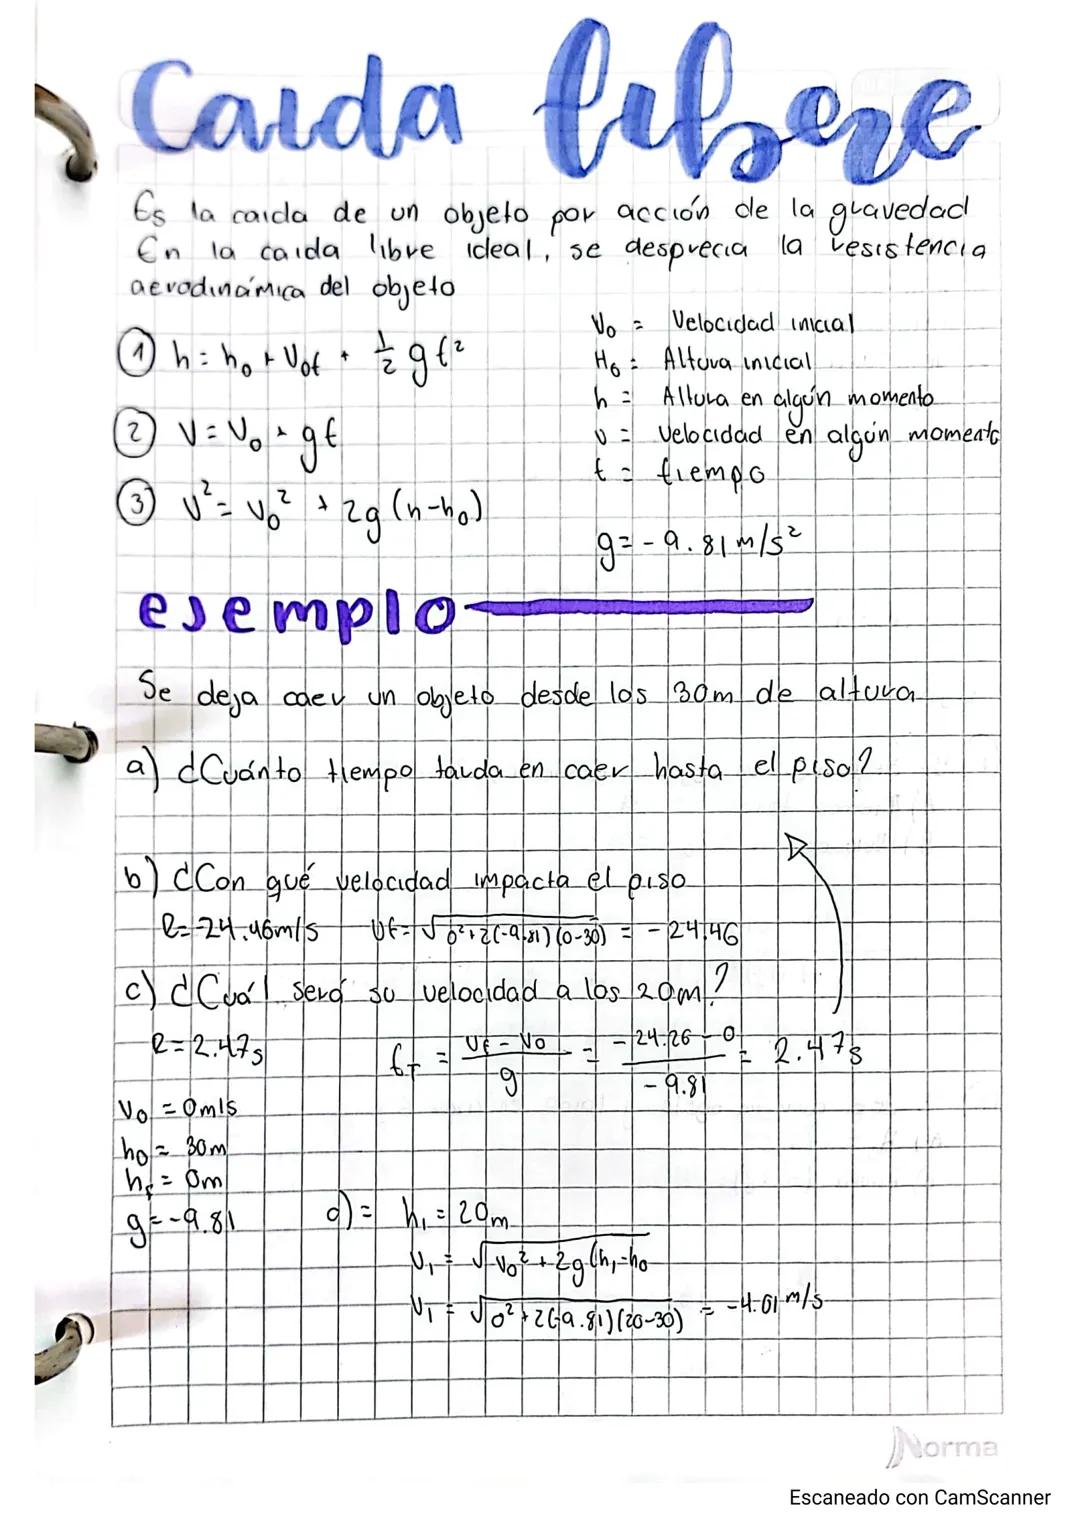 Caída libere
Es la caída de un objeto por acción de la gravedad
En la caída libre ideal, se desprecia la resistencia
aerodinámica del objeto
① h = h₀ + V₀t + 1/2 gt²
② V = V₀ + gt
③ V² = V₀² + 2g (h-h₀)
V₀ = Velocidad inicial
H₀ = Altura inicial
h = Altura en algún momento
v = Velocidad en algún momento
t = tiempo
g = -9.81 m/s²
ejemplo
Se deja caer un objeto desde los 30m de altura
a) ¿Cuánto tiempo tarda en caer hasta el piso?
b) ¿Con qué velocidad impacta el piso
R=-24.46m/s Vf = √0²+2(-9.81)(0-30) = -24.46
c) ¿Cuál será su velocidad a los 20m?
R=2.47s tT = Vf - V0 / g = -24.26 - 0 / -9.81 = 2.47s
V₀ = 0m/s
h₀ = 30m
hf = 0m
g = -9.81
d) = h₁ = 20m
V₁ = √V₀² + 2g (h₁-h₀
V₁ = √0² + 2(-9.81)(20-30) = -4.01 m/s
Norma
Escaneado con CamScanner